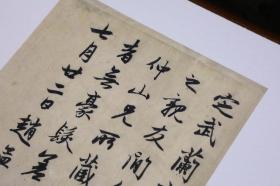 定武蘭
之親友閒
仲山兄所
者無豪髮
七月廿二日趙孟